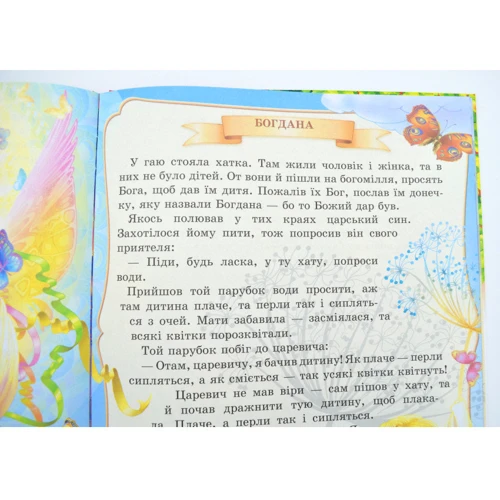 БОГДАНА
У гаю стояла хатка. Там жили чоловік і жінка, та в
них не було дітей. От вони й пішли на богомілля, просять
Бога, щоб дав їм дитя. Пожалів їх Бог, послав їм донеч-
ку, яку назвали Богдана — бо то Божий дар був.
Якось полював у тих краях царський син.
Захотілося йому пити, тож попросив він свого
приятеля:
— Піди, будь ласка, у ту хату, попроси
води.
Прийшов той парубок води просити, аж
там дитина плаче, та перли так і сиплять-
ся з очей. Мати забавила — засміялася, та
всякі квітки порозквітали.
Той парубок побіг до царевича:
— Отам, царевичу, я бачив дитину! Як плаче — перли
сипляться, а як сміється — так усякі квітки квітнуть!
Царевич не мав віри — сам пішов у хату, та
й почав дражнити тую дитину, щоб плака-
ла. Плаче, а перли так і сипляться.